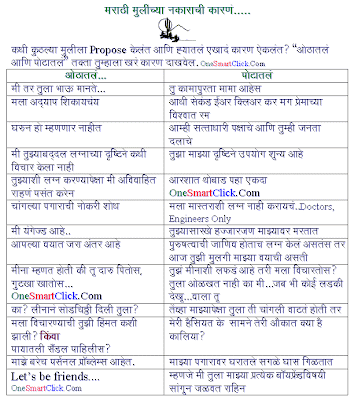 मराठी मुलींच्या नकाराची कारणं.....
कधी कुठल्या मुलीला Propose केलंत आणि ह्यातलं एखादं कारण ऐकलंत? "ओठातलं
आणि पोटातलं" तक्ता तुम्हाला खरं कारण दाखवेल. OneSmartClick.Com
ओठातलं... पोटातलं...
मी तर तुला भाऊ मानते... तु कामापुरता मामा आहेस
मला अद्याप शिकायचंय आधी सेकंड ईअर क्लिअर कर मग प्रेमाच्या
विश्वात रम
घरुन हो म्हणणार नाहीत आम्ही सत्ताधारी पक्षाचे आणि तुम्ही जनता
दलाचे
मी तुझ्याबद्दल लग्नाच्या दृष्टिने कधी तुझा माझ्या दृष्टिने उपयोग शुन्य आहे
विचार केला नाही
तुझ्याशी लग्न करण्यापेक्षा मी अविवाहित आरशात थोबाड पहा एकदा
राहणं पसंत करेन OneSmartClick.Com
चांगल्या पगाराची नोकरी शोध मला मास्तराशी लग्न नाही करायचं..Doctors,
Engineers Only
मी एंगेज्ड आहे.. तुझ्यासारखे हज्जारजण माझ्यावर मरतात
आपल्या वयात जरा अंतर आहे पुरुषत्वाची जाणिव होताच लग्न केलं असतंस तर
आज तुझी मुलगी माझ्या वयाची असती
मीना म्हणत होती की तु दारु पितोस, तुझं मीनाशी लफडं आहे तरी मला विचारतोस?
गुटखा खातोस... तुला ओळखत नाही का मी...जब भी कोई लडकी
OneSmartClick.Com देखू...वाला तू
का? लीनानं सोडचिठ्ठी दिली तुला? तेव्हा माझ्यापेक्षा तुला ती चांगली वाटत होती तर
मला विचारण्याची तुझी हिंमत कशी मेरी हैसियत के सामने तेरी औकात क्या है
झाली? किंवा कालिया?
पायातली सँडल पाहिलीस?
माझे बरेच पर्सनल प्रॉब्लेम्स आहेत. माझ्या पगारावर घरातलं सगळं घास गिळतात
Let's be friends... म्हणजे मी तुला माझ्या प्रत्येक बॉयफ्रेंडविषयी
OneSmartClick.Com सांगून जळवत राहिन